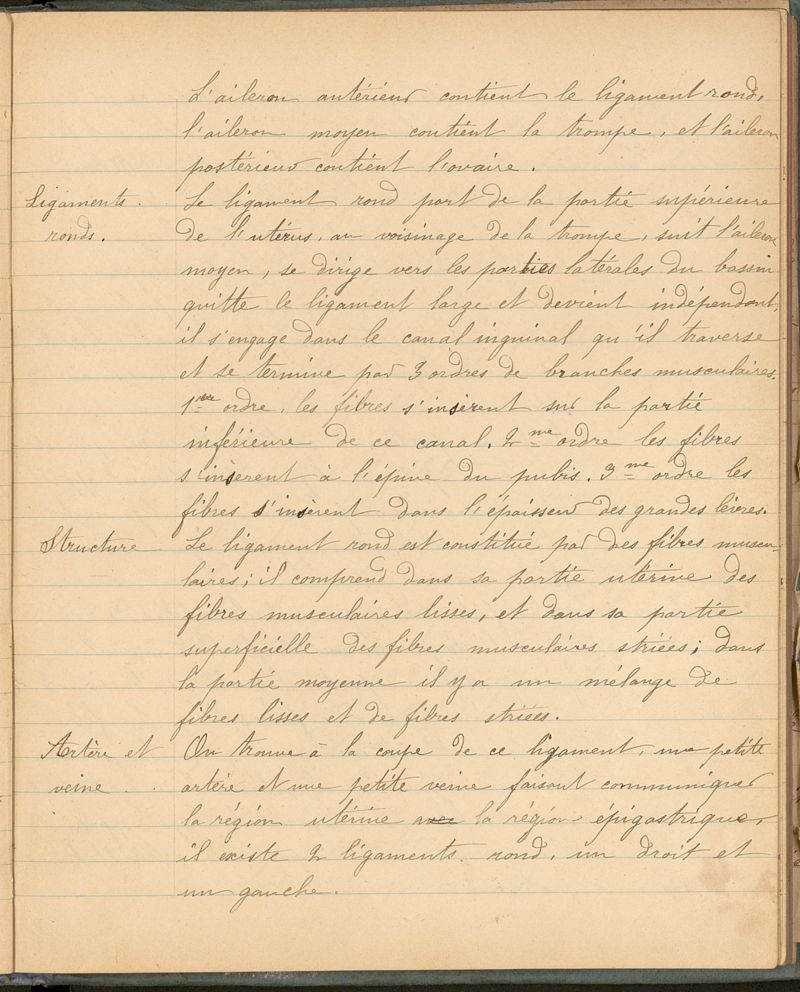 L'aileron antérieur contient le ligament rond,
l'aileron moyen contient la trompe, et l'aileron
postérieur contient l'ovaire.
Ligaments. Le ligament rond part de la partie supérieure
ronds. de l'utérus, au voisinage de la trompe, suit l'aileron
moyen, se dirige vers les parties latérales du bassin
quitte le ligament large et devient indépendant,
il s'engage dans le canal inguinal qu'il traverse
et se termine par 3 ordres de branches musculaires.
1er ordre, les fibres s'insèrent sur la partie
inférieure de ce canal. 2me ordre les fibres
s'insèrent à l'épine du pubis. 3me ordre les
fibres s'insèrent dans l'épaisseur des grandes lèvres.
Structure Le ligament rond est constitué par des fibres muscu-
laires; il comprend dans sa partie utérine des
fibres musculaires lisses, et dans sa partie
superficielle des fibres musculaires striées; dans
la partie moyenne il y a un mélange de
fibres lisses et de fibres striées.
Artère et On trouve à la coupe de ce ligament, une petite
veine. artère et une petite veine faisant communiquer
la région utérine avec la région épigastrique,
il existe 2 ligaments rond, un droit et
un gauche.